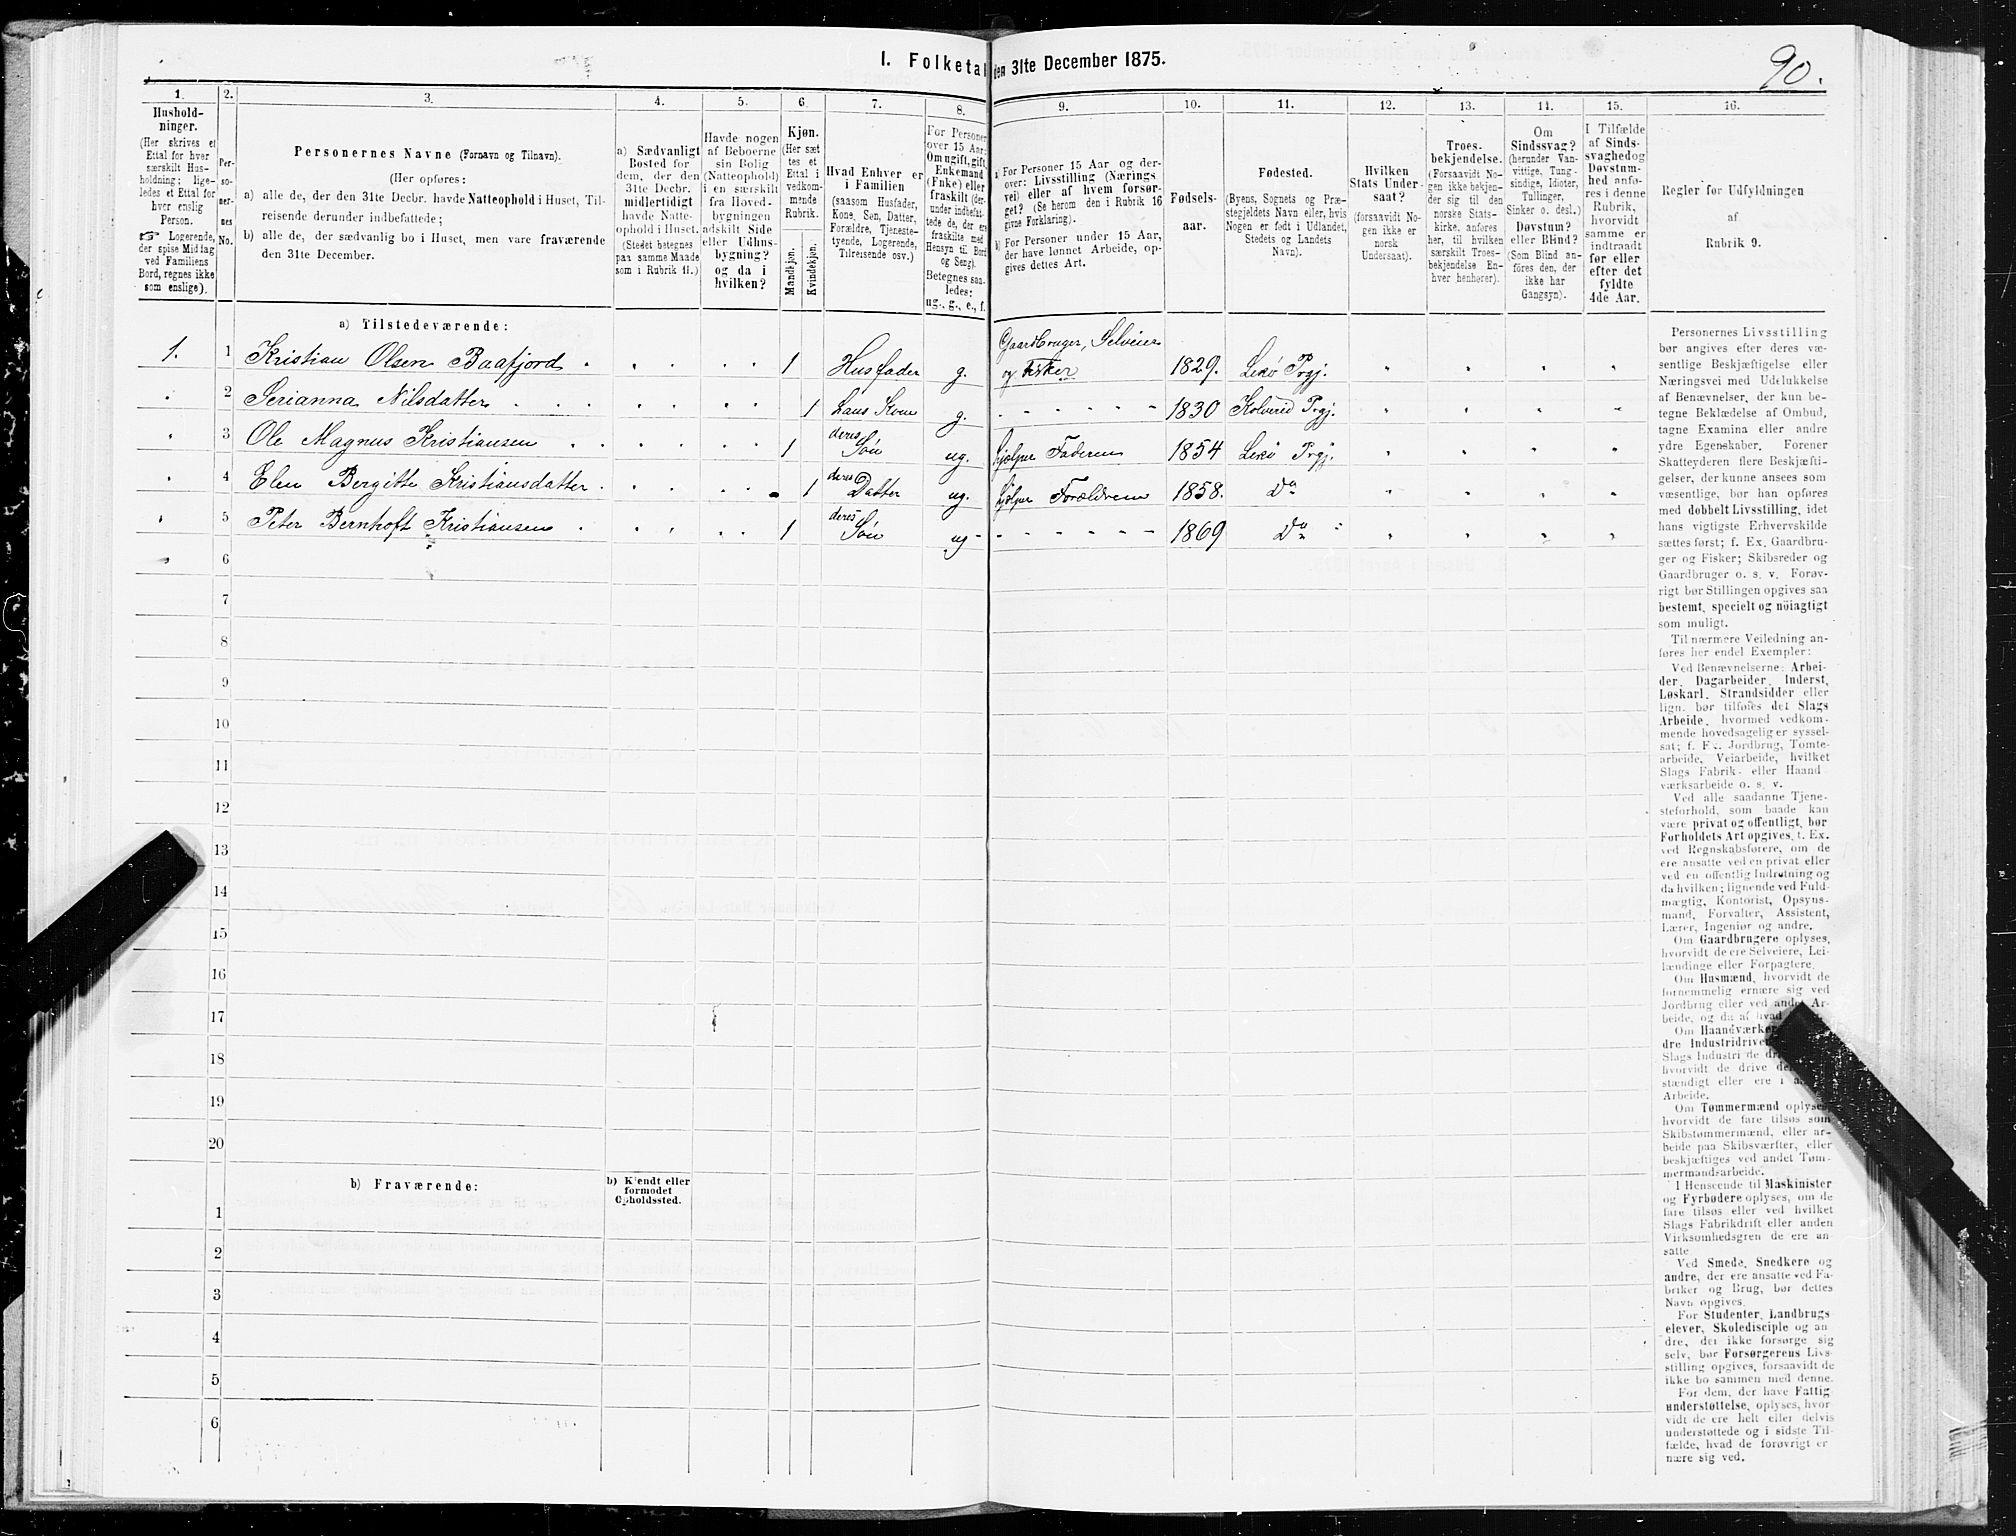 90.
I. Folketal den 31te December 1875.
1. 2. 3. 4. 5. 6. 7. 8. 9. 10. 11. 12. 13. 14. 15. 16.
Hushold-
ninger.
(Her skrives et
Ettal for hver
særskilt Hus-
holdning; lige-
ledes et Ettal for
hver enslig
Person.
☞ Logerende,
der spise Middag
ved Familiens
Bord, regnes ikke
som enslige).
Per-
so-
ner-
nes
No.
Personernes Navne (Fornavn og Tilnavn).
(Her opføres:
a) alle de, der den 31te Decbr. havde Natteophold i Huset, Til-
reisende derunder indbefattede;
b) alle de, der sædvanlig bo i Huset, men vare fraværende
den 31te December.
a) Sædvanligt
Bosted for
dem, der den
31te Decbr.
midlertidigt
havde Natte-
ophold i Huset.
(Stedet betegnes
paa samme Maade
som i Rubrik 11.)
Havde nogen
af Beboerne
sin Bolig
(Natteophold)
i en særskilt
fra Hoved-
bygningen
adskilt Side
eller Udhus-
bygning?
og da i
hvilken?
Kjøn.
(Her sæt
tes et
Ettal i
vedkom-
mende
Rubrik.
Mandkjøn.
Kvindekjøn.
Hvad Enhver er
i Familien
(saasom Husfader,
Kone, Søn, Datter,
Forældre, Tjeneste-
tyende, Logerende,
Tilreisende osv.)
For Personer
over 15 Aar:
Om ugift, gift,
Enkemand
(Enke) eller
fraskilt (der-
under indbefat-
tede de, der ere
fraskilte med
Hensyn til Bord
og Seng).
Betegnes saa-
ledes:
ug., g., e., f.
a) For Personer 15 Aar og der-
over: Livsstilling (Nærings
vei) eller af hvem forsør-
get? (Se herom den i Rubrik 16
givne Forklaring).
b) For Personer under 15 Aar,
der have lønnet Arbeide, op-
gives dettes Art.
Fødsels-
aar.
Fødested.
(Byens, Sognets og Præ-
stegjeldets Navn eller, hvis
Nogen er født i Udlandet,
Stedets og Landets
Navn).
Hvilken
Stats Under-
saat?
(forsaavidt No-
gen ikke er
norsk
Undersaat).
Troes-
bekjendelse.
(Forsaavidt No-
gen ikke bekjen-
der sig til den
norske Stats-
kirke, anføres
her, til hvilken
særskilt Troes-
bekjendelse En-
hver henhører).
Om
Sindssvag?
(herunder Van-
vittige, Tung-
sindige, Idioter,
Tullinger,
Sinker o. desl.)
Døvstum?
eller Blind?
(Som Blind an-
føres den, der
ikke har
Gangsyn).
I Tilfælde
af Sinds-
svaghed og
Døvstum-
hed anfø-
res i denne
Rubrik,
hvorvidt
samme er
indtraadt
før eller
efter det
fyldte
4de Aar.
Regler før Udfyldningen
af
Rubrik 9.
a) Tilstedeværende:
1. 1 Kristian Olsen Baafjord 1 Husfader g. Gaardbruger, Selveier og Fisker 1829. Lekø Prgj.
2 Serianna Nilsdatter 1 hans Kone g. 1830 Kolvereid Prgj.
3 Ole Magnus Kristiansen 1 deres Søn ug. hjælper Faderen 1854 Lekø Prgj.
4 Elen Bergitte Kristiansdatter 1 deres Datter ug. hjælper Forældrene 1858. Do
5 Peter Bernhoft Kristiansen 1 deres Søn ug 1869 Do
6
7
8
9
10
11
12
13
14
15
16
17
18
19
20
b) Fraværende:
b) Kjendt eller
formodet
Opholdssted.
1
2
3
4
5
6
Personernes Livsstilling
bør angives efter deres væ-
sentlige Beskjæftigelse eller
Næringsvei med Udelukkelse
af Benævnelser, der kun be-
tegne Beklædelse af Ombud,
tagne Examina eller andre
ydre Egenskaber. Forener
Skatteyderen flere Beskjæfti-
gelser, der kunne ansees som
væsentlige, bør han opføres
med dobbelt Livsstilling, idet
hans vigtigste Erhvervskilde
sættes først; f. Ex. Gaardbru-
ger og Fisker; Skibsreder og
Gaardbruger o. s. v. Forøv-
rigt bør Stillingen opgives saa
bestemt, specielt og nöiagtigt
som muligt.
Til nærmere Veiledning an-
føres her endel Exempler:
Ved Benævnelserne: Arbei-
der, Dagarbeider, Inderst,
Løskarl, Strandsidder eller
lign. bør tilføies det Slags
Arbeide, hvormed vedkom-
mende hovedsagelig er syssel-
sat; f. Ex. Jordbrug, Tomte-
arbeide, Veiarbeide, hvilket
Slags Fabrik- eller Haand
værksarbeide o. s. v.
Ved alle saadanne Tjene-
steforhold, som baade kan
være privat og offentligt, bør
Forholdets Art opgives, t. Ex.
ved Regnskabsførere, om de
ere ansatte ved en privat eller
ved en offentlig Indretning og
da hvilken; lignende ved Fuld-
mægtig, Kontorist, Opsyns-
mand, Forvalter, Assistent,
Lærer, Ingeniør og andre.
Om Gaardbrugere oplyses,
hvorvidt de ere Selveiere, Lei-
lændinge eller Forpagtere.
Om Husmænd, hvorvidt de
fornemmelig ernære sig ved
Jordbrug eller ved andet Ar-
beide, og da af hvad
Om Haandværker
dre Industridrive
Slags Industri de dr
hvorvidt de drive de
stændigt eller ere i
Arbeide.
Om Tømmermænd oplyses,
hvorvidt de fare tilsøs som
Skibstømmermænd, eller ar-
beide paa Skibsværfter, eller
beskjæftiges ved andet Tøm-
mermandsarbeide.
I Henseende til Maskinister
og Fyrbødere oplyses, om de
fare tilsøs eller ved hvilket
Slags Fabrikdrift eller anden
Virksomhedsgren de ere an-
satte
Ved Smede, Snedkere og
andre, der ere ansatte ved Fa-
briker og Brug, bør dettes
Navn opgives.
For Studenter, Landbrugs
elever, Skoledisciple og an
dre, der ikke forsørge sig
selv, bør Forsørgerens Livs-
stilling opgives, forsaavidt de
ikke bo sammen med denne.
For dem, der have Fattig
understøttelse, oplyses, hvor-
vidt de ere helt eller delvis
understøttede og i sidste Til-
fælde, hvad de forøvrigt er
nære sig ved.